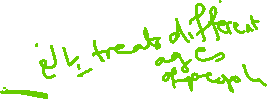 treats different
ages
of people